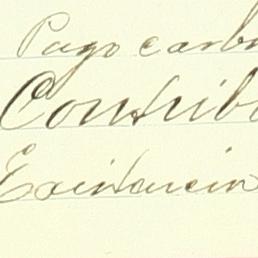 Pago carb
Contrib
Existencia